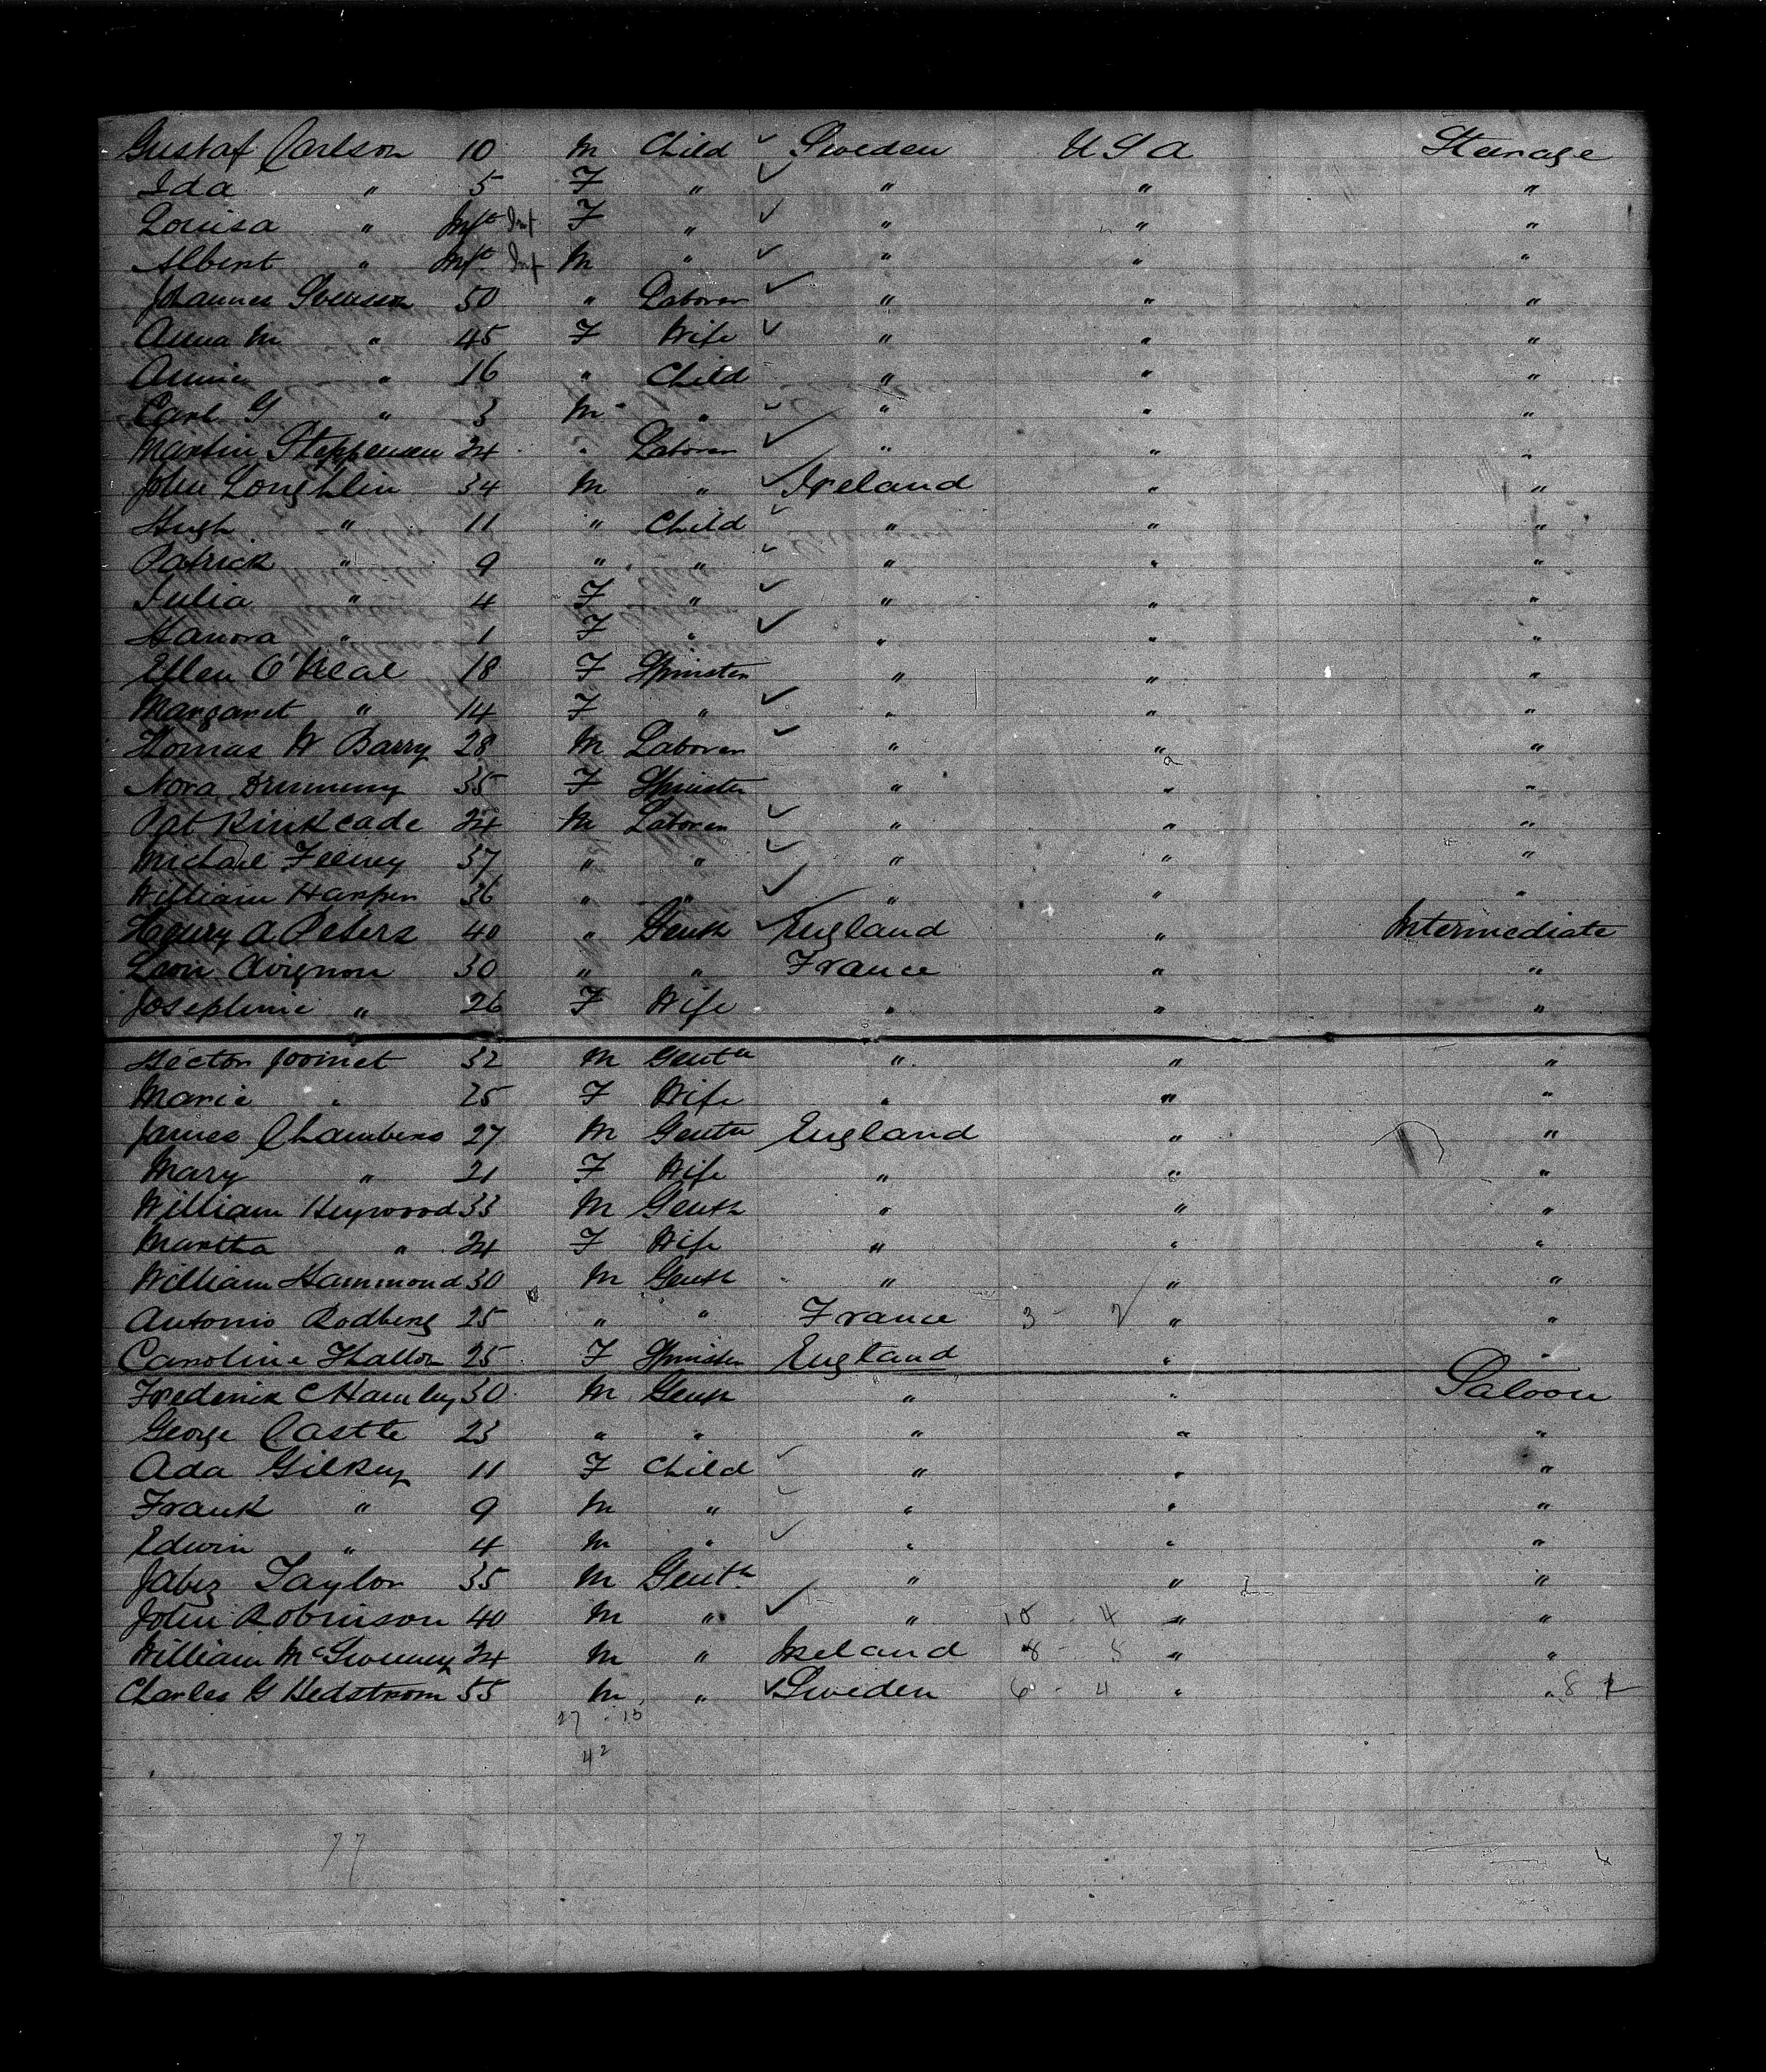 Gustaf Carlson 10 M Child ✓ Sweden U S A Steerage
Ida " 5 F " ✓ " " "
Louisa " Inft Inf F " ✓ " " "
Albert " Inft Inf M " ✓ " " "
Johannes Svenson 50 " Laborer ✓ " " "
Anna M " 45 F Wife ✓ " " "
Annie " 16 " Child " " "
Carl G " 3 M " ✓ " " "
Martin Steppensen 24 " Laborer ✓ " " "
John Loughlin 34 M " ✓ Ireland " "
Hugh " 11 " Child ✓ " " "
Patrick " 9 " " ✓ " " "
Julia " 4 F " ✓ " " "
Hanora " 1 F " ✓ " " "
Ellen O'Neal 18 F Spinster " " "
Margaret " 14 F " ✓ " " "
Thomas W Barry 28 M Laborer ✓ " " "
Nora 35 F Spinster " " "
Pat Kinkeade 24 M Laborer ✓ " " "
Michael Feeney 37 " " ✓ " " "
William Harper 36 " " ✓ " " "
Henry A Peters 40 " Gentn ✓ England " Intermediate
Leon Avignon 30 " " France " "
Josephine " 26 F Wife " " "
Hector 32 M Gentn " " "
Marie " 25 F Wife " " "
James Chambers 27 M Gentn England " "
Mary " 21 F Wife " " "
William Heywood 33 M Gentn " " "
Martha " 24 F Wife " " "
William Hammond 30 M Gentn " " "
Antonio Rodberg 25 " " France 3 - 2 " "
Caroline 25 F Spinster England " "
Frederick C Hamley 30 M Gentn " " Saloon
George Castle 23 " " " " "
Ada Gilkey 11 F Child ✓ " " "
Frank " 9 M " ✓ " " "
Edwin " 4 M " ✓ " " "
Jabez Taylor 35 M Gentn " " "
John Robinson 40 M " ✓ " 10 - 4 " "
William McSweeney 24 M " Ireland 8 - 5 " "
Charles G Hedstrom 55 M " ✓ Sweden 6 - 4 " " 8
27 - 15
42
77